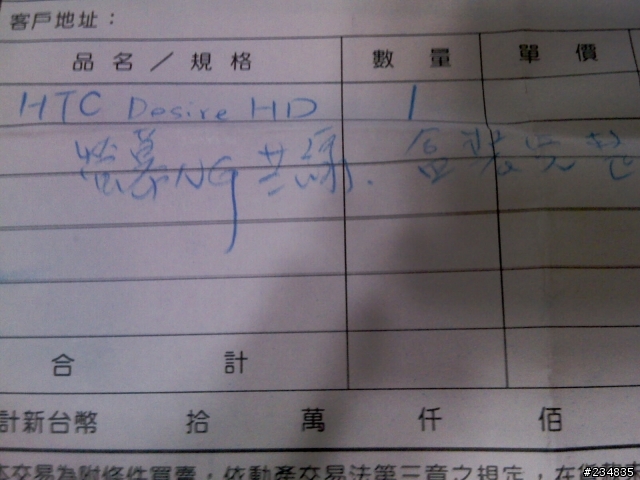 客戶地址：
品名／規格 數量 單價
HTC Desire HD 1
螢幕NG 盒裝完整
合計
計新台幣 拾 萬 仟 佰
本交易為附條件買賣，依動產交易法第三章之規定，在
#234835